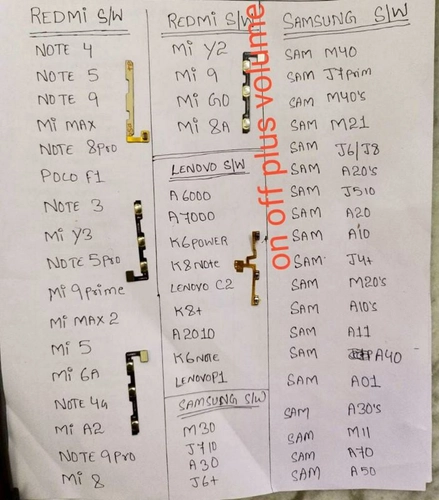 REDMI S/W
NOTE 4
NOTE 5
NOTE 9
Mi MAX
NOTE 8pro
POCO F1
NOTE 3
Mi Y3
NOTE 5pro
Mi 9prime
Mi MAX 2
Mi 5
Mi 6A
NOTE 4G
Mi A2
NOTE 9pro
Mi 8
REDMI S/W
Mi Y2
Mi 9
Mi GO
Mi 8A
LENOVO S/W
A6000
A7000
K6POWER
K8NOTE
LENOVO C2
K8+
A2010
K6NOTE
LENOVOP1
SAMSUNG S/W
M30
J710
A30
J6+
on off plus volume
SAMSUNG S/W
SAM M40
SAM J7Prim
SAM M40's
SAM M21
SAM J6/J8
SAM A20's
SAM J510
SAM A20
SAM A10
SAM J4+
SAM M20's
SAM A10's
SAM A11
SAM A40
SAM A01
SAM A30's
SAM M11
SAM A70
SAM A50